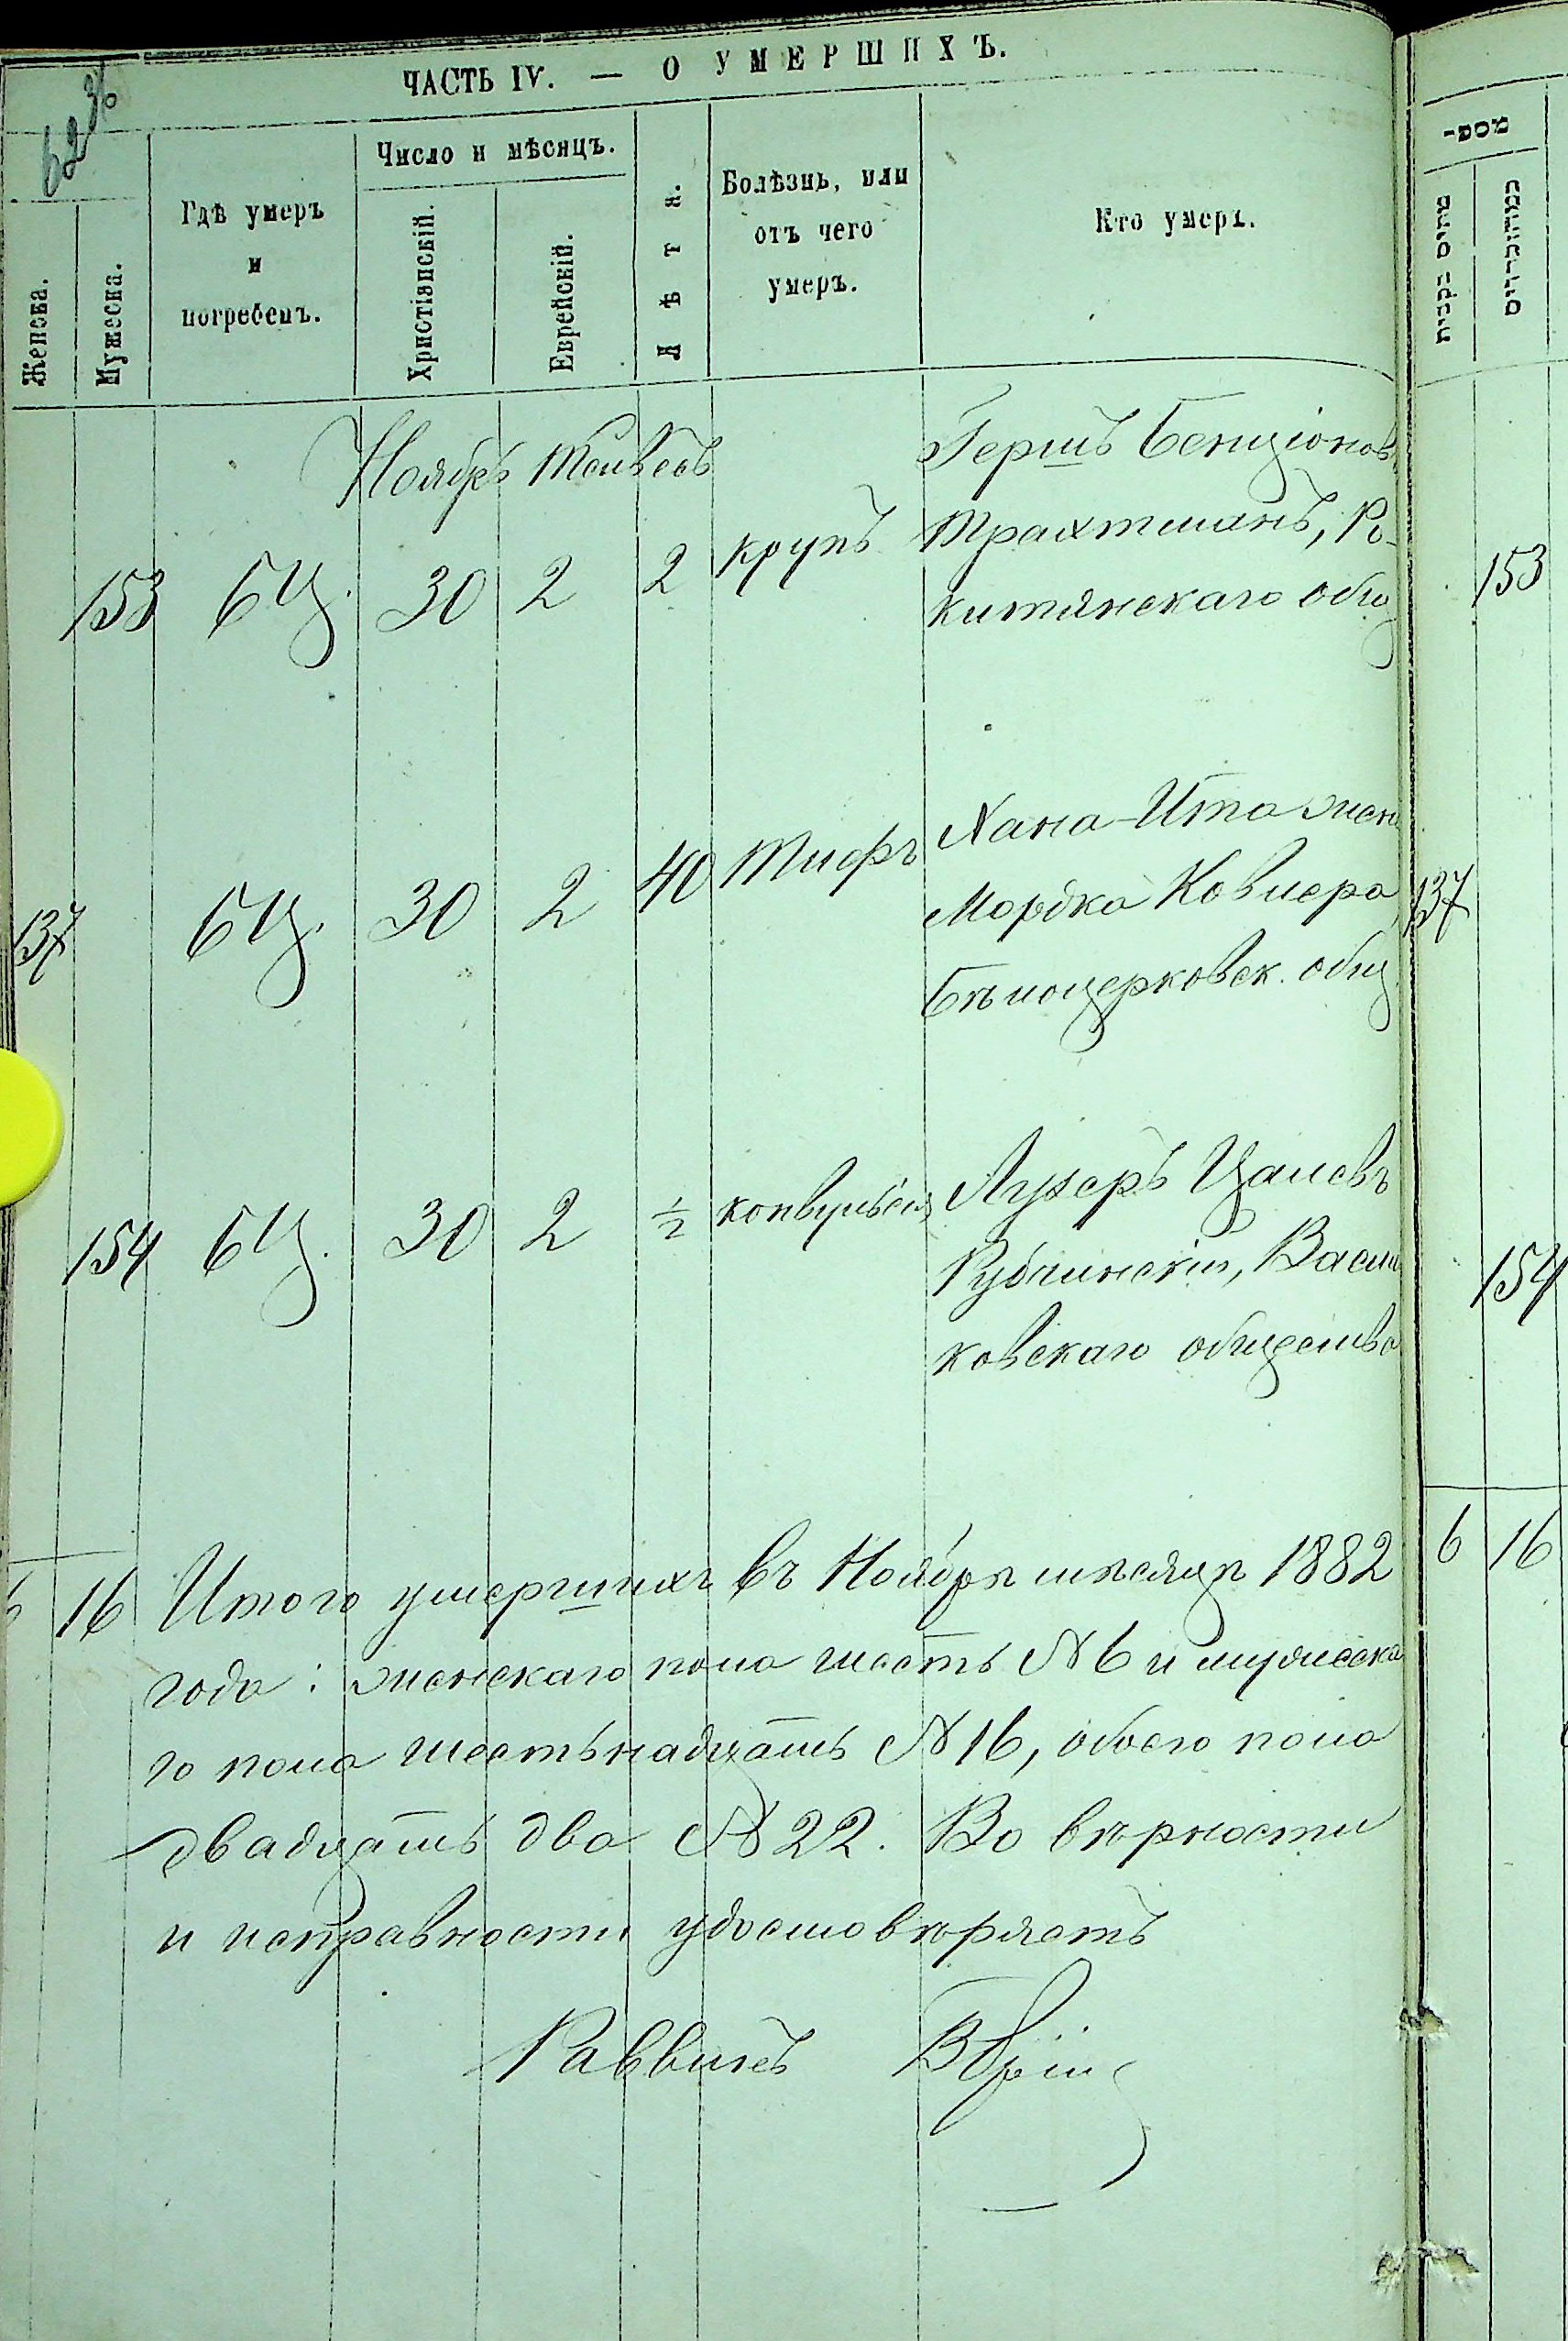 ЧАСТЬ IV. — О УМЕРШИХЪ.
62 36
Женска.
Мужеска.
Гдѣ умеръ
и
погребенъ.
Число и мѣсяцъ.
Христіянскій.
Еврейскій.
Лѣта.
Болѣзнь, или
отъ чего
умеръ.
Кто умеръ.
מספר
Ноябрь Тейвесъ
Гершъ Бенціоновъ
153 БЦ. 30 2 2 крупъ Трахтманъ, Ро-
китянскаго общ
153
137 БЦ. 30 2 40 Тифъ Хана-Ита жена
Мордка Ковлера,
Бѣлоцерковск. общ
137
154 БЦ. 30 2 ½ конвульсія Лузеръ Цалевъ
Рублинскій, Василь
ковскаго общества
154
6 16
6 16 Итого умершихъ въ Ноябрѣ мѣсяцѣ 1882
года: женскаго пола шесть № 6 и мужеска
го пола шестьнадцать № 16, обоего пола
двадцать два № 22. Во вѣрности
и исправности удостовѣряетъ
Раввинъ